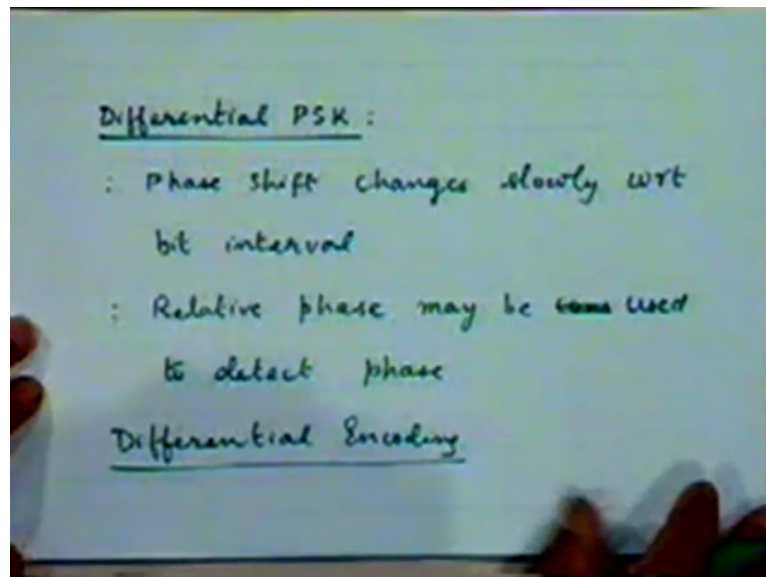 Differential PSK :
: Phase shift changes slowly wrt
bit interval
: Relative phase may be used
to detect phase
Differential Encoding